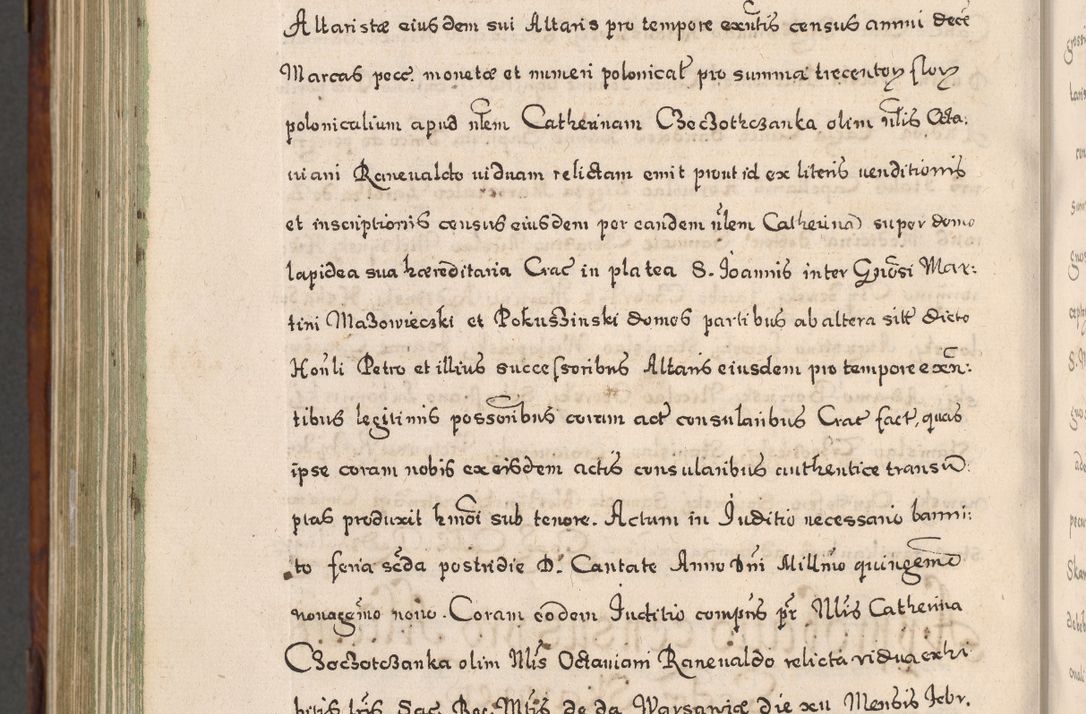 Altaristæ eiusdem sui Altaris pro tempore exñtis census annui decẽ
Marcas pecc. monetæ et numeri polonicał pro summa trecentoꝝ floꝝ
polonicalium apud ñlem Catherinam Czeczotkczanka olim ñlis Octa:
uiani Raneualdo uiduam relictam emit prout id ex literis uenditionis
et inscriptionis census eiusdem per eandem ñlem Catherinã super domo
lapidea sua hæreditaria Crac in platea S. Joannis inter Gnõsi Mar:
tini Mazowieczki et Pokuszinski domos partibus ab altera site dicto
Honli Petro et illius successoribus Altaris eiusdem pro tempore exñ:
tibus legitimis possoribus coram act consularibus Crac fact, quas
ipse coram nobis ex eisdem actis consularibus authentice transũ:
ptas produxit hmõi sub tenore. Actum in Juditio necessario banni:
to feria scda postridie D. Cantate Anno Dñi Millmo quingẽmo
nonagemo nono. Coram eodem Juditio compñs pr Nlis Catherina
Czeczotczanka olim Nlis Octauiani Raneualdo relicta vidua exhi
bitis lris Sac. Reg. Mtis de da Warsaviæ die xii Mensis Febr.